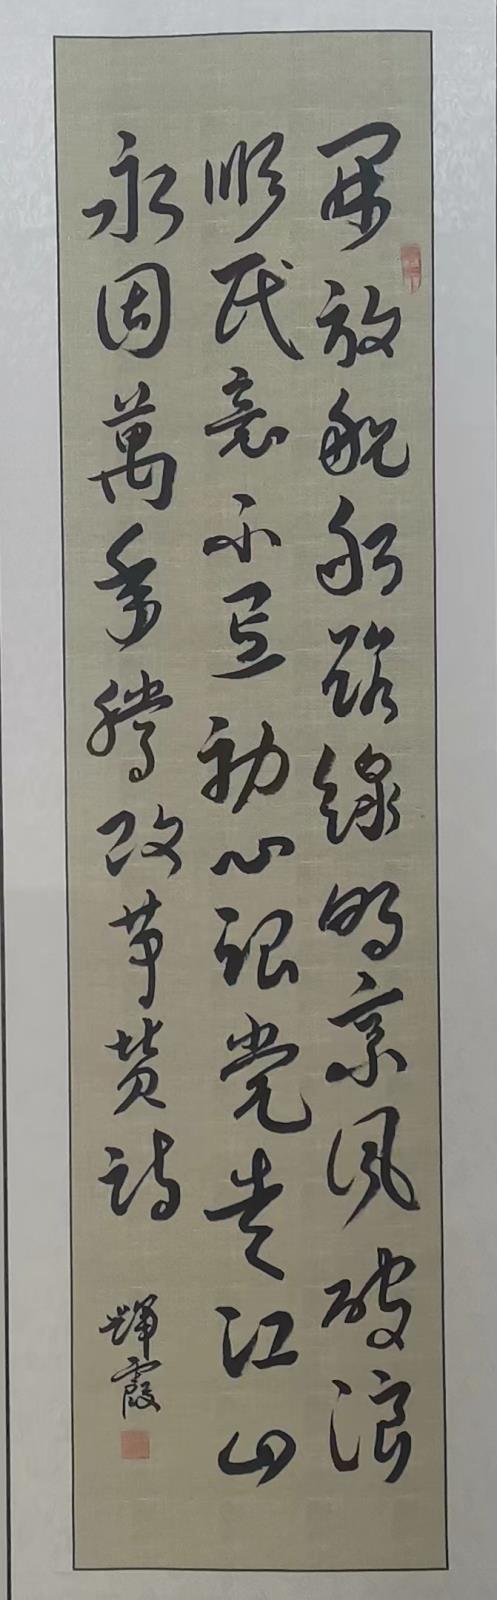 開放航船路線明乘风破浪
顺民意不忘初心跟党走江山
永固萬年騰改革赞诗
輝霞